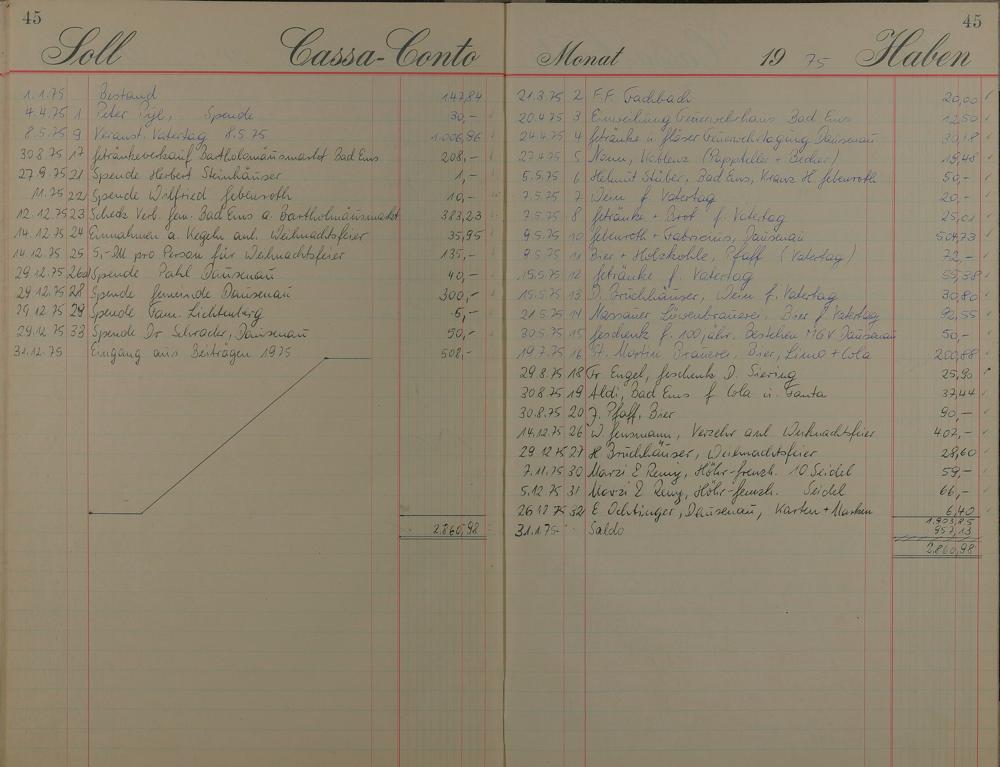 45
Soll Cassa-Conto
1.1.75 Bestand 147,84
4.4.75 1 Peter Pyl, Spende 30,-
8.5.75 9 Veranst. Vatertag 8.5.75 1.006,96
30.8.75 17 Getränkeverkauf Bartholomäusmarkt Bad Ems 208,-
27.9.75 21 Spende Herbert Steinhäuser 1,-
11.75 22 Spende Wilfried Gebenroth 10,-
12.12.75 23 Scheck Verb. Gem. Bad Ems a. Bartholmäusmarkt 383,23
14.12.75 24 Einnahmen a. Kegeln anl. Weihnachtsfeier 35,95
14.12.75 25 5,-DM pro Person für Weihnachtsfeier 135,-
29.12.75 26a Spende Pahl Dausenau 40,-
29.12.75 28 Spende Gemeinde Dausenau 300,-
29.12.75 29 Spende Fam. Lichtenberg 5,-
29.12.75 33 Spende Dr. Schrader, Dausenau 50,-
31.12.75 Eingang aus Beiträgen 1975 508,-
2.860,98
45
Monat 19 75 Haben
21.3.75 2 F.F. Fachbach 20,00
20.4.75 3 Einweihung Feuerwehrhaus Bad Ems 12,50
24.4.75 4 Getränke u. Gläser Feuerwehrtagung Dausenau 30,18
27.4.75 5 Nenn, Koblenz (Pappteller + Becher) 18,48
5.5.75 6 Helmut Stüber, Bad Ems, Kranz H. Gebenroth 50,-
7.5.75 7 Wein f. Vatertag 20,-
7.5.75 8 Getränke + Brot f. Vatertag 25,01
9.5.75 10 Gebenroth + Fabricius, Dausenau 504,73
9.5.75 11 Bier + Holzkohle, Pfaff (Vatertag) 72,-
15.5.75 12 Getränke f. Vatertag 55,38
15.5.75 13 D. Bruchhäuser, Wein f. Vatertag 30,80
21.5.75 14 Nassauer Löwenbrauerei, Bier f. Vatertag 92,55
30.5.75 15 Geschenk f. 100 jähr. Bestehen MGV Dausenau 50,-
19.7.75 16 St. Martin Brauerei, Bier, Limo + Cola 200,88
29.8.75 18 Fr. Engel, Geschenk D. Siering 25,90
30.8.75 19 Aldi, Bad Ems f. Cola u. Fanta 37,44
30.8.75 20 J. Pfaff, Bier 90,-
14.12.75 26 W. Gensmann, Verzehr anl. Weihnachtsfeier 407,-
29.12.75 27 H Bruchhäuser, Weihnachtsfeier 28,60
7.11.75 30 Marzi & Remy, Höhr-Grenzh. 10 Seidel 59,-
5.12.75 31 Marzi & Remy, Höhr-Grenzh. Seidel 66,-
26.12.75 32 E Ochtinger, Dausenau, Karten + Marken 6,40
1.903,85
31.1.75 Saldo 957,13
2.860,98